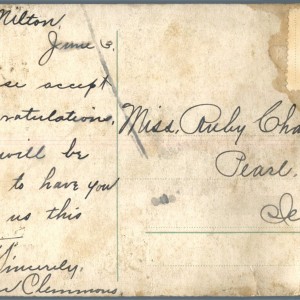 Milton,
June 3.
se accept
gratulations,
will be
to have you
us this
Sincerely,
Clemmons.
Miss, Ruby Cha
Pearl.